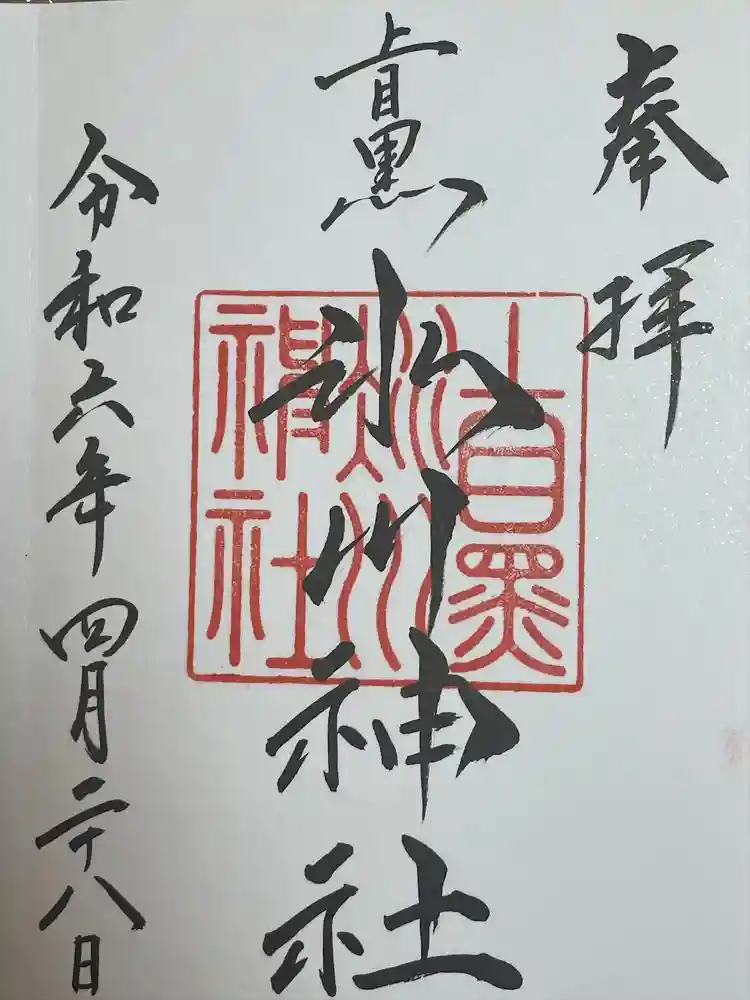 奉拝
上目黒氷川神社
上目黒
氷川
神社
令和六年四月二十八日